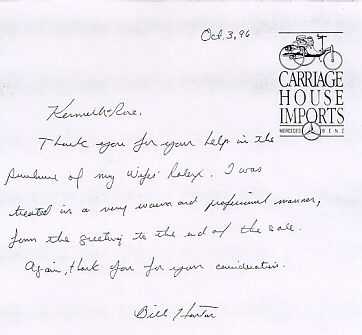 Oct. 3, 96
CARRIAGE
HOUSE
IMPORTS
MERCEDES BENZ
Kenneth Rose,
Thank you for your help in the
purchase of my Wifes' Rolex. I was
treated in a very warm and professional manner,
form the greeting to the end of the sale.
Again, thank you for your consideration.
Bill